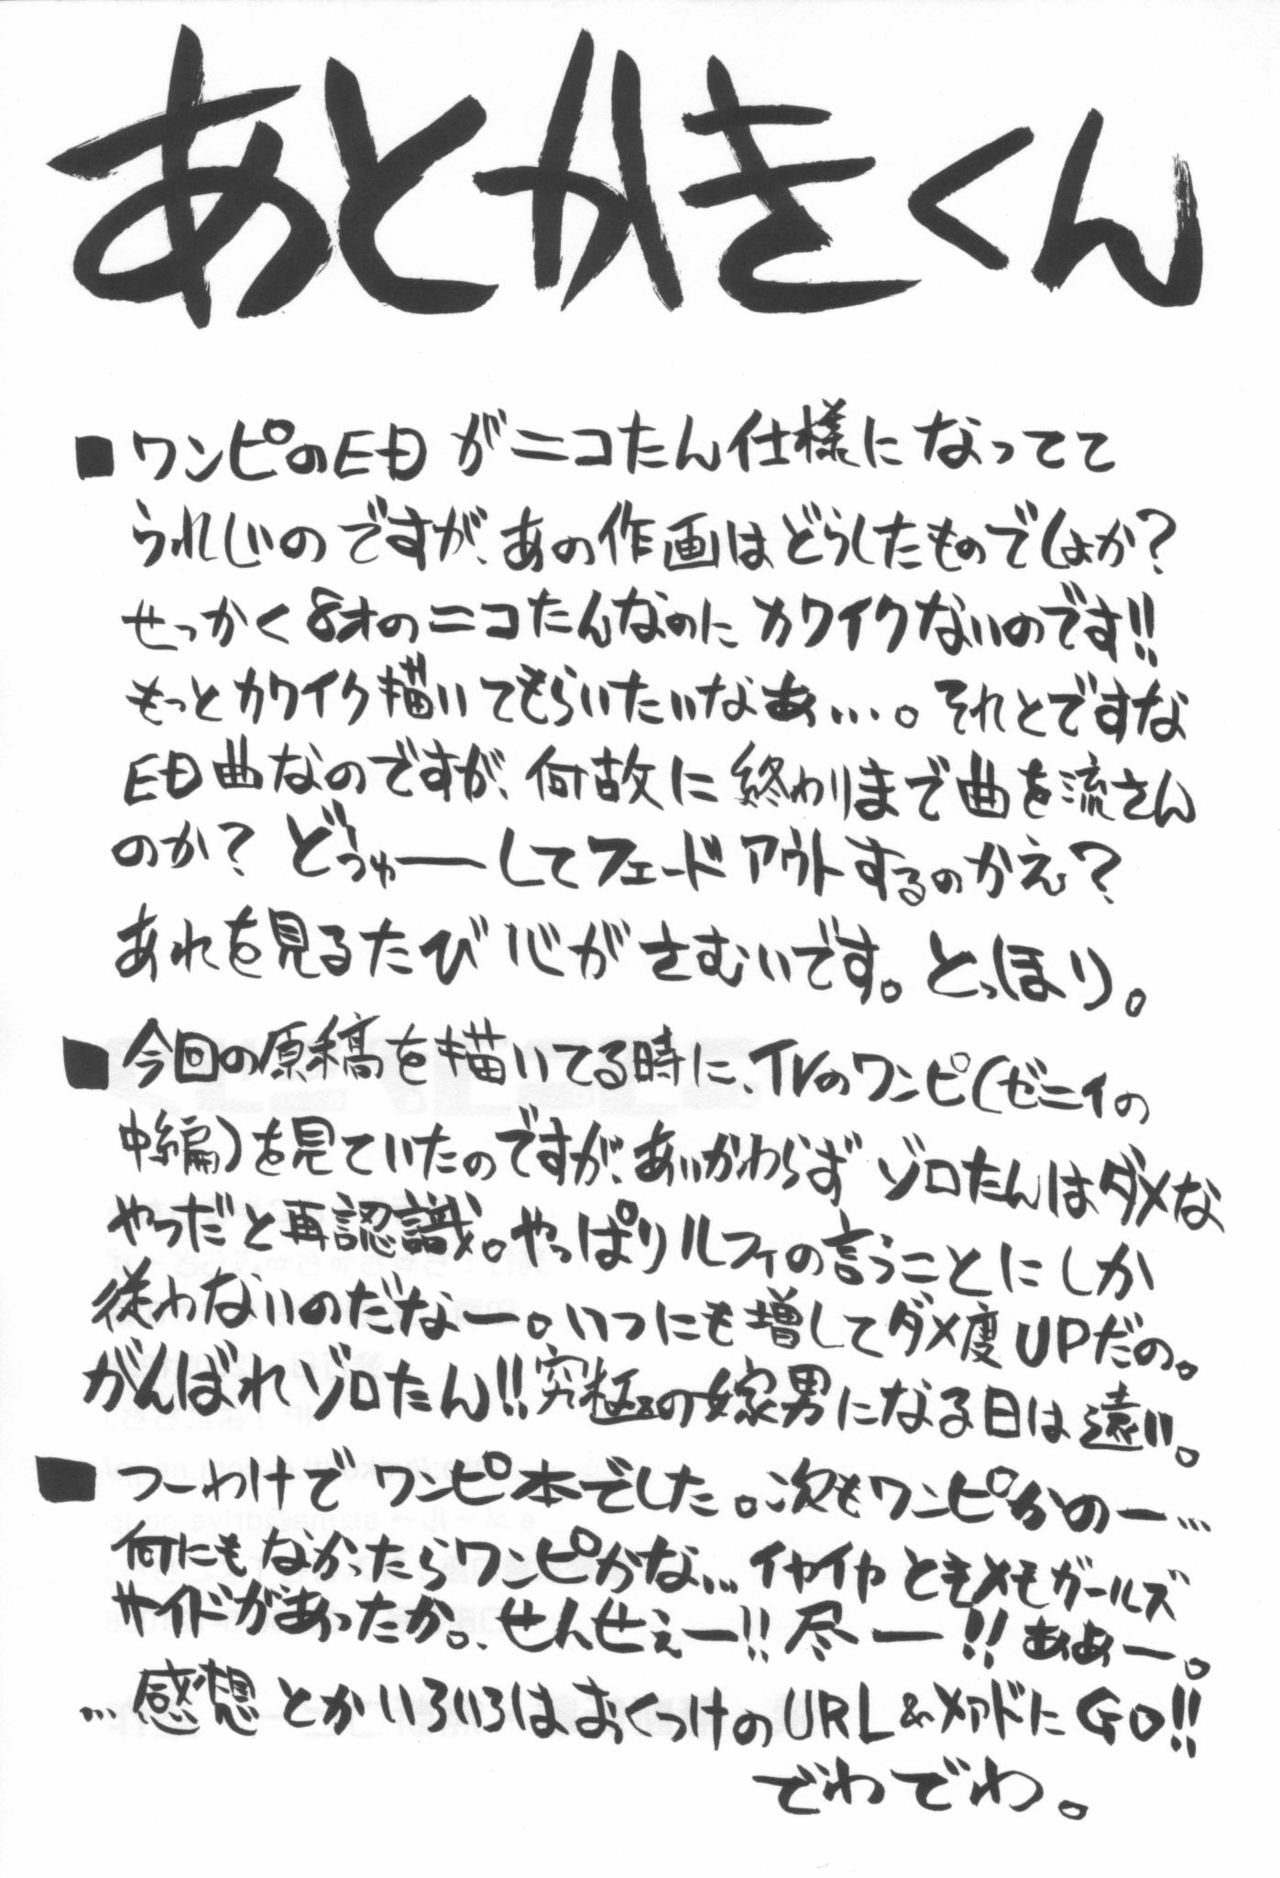 あとかきくん
■ワンピのEDがニコたん仕様になってて
うれしいのですが、あの作画はどうしたものでしょか?
せっかく8才のニコたんなのにカワイクないのです!!
もっとカワイク描いてもらいたいなあ…。それとですな
ED曲なのですが、何故に終わりまで曲を流さん
のか? どぅゅーしてフェードアウトするのかえ?
あれを見るたび心がさむいです。とっほり。
■今回の原稿を描いてる時に、TVのワンピ(ゼニイの
中編)を見ていたのですが、あいかわらずゾロたんはダメな
やつだと再認識。やっぱりルフィの言うことにしか
従わないのだなー。いつにも増してダメ度UPだの。
がんばれゾロたん!!究極の嫁男になる日は遠い。
■つーわけでワンピ本でした。次もワンピかのー…
何にもなかったらワンピかな…イヤイヤときメモガールズ
サイドがあったか。せんせぇー!!尽ー!!ああー。
…感想とかいろいろはおくつけのURL&メアドにGO!!
でわでわ。